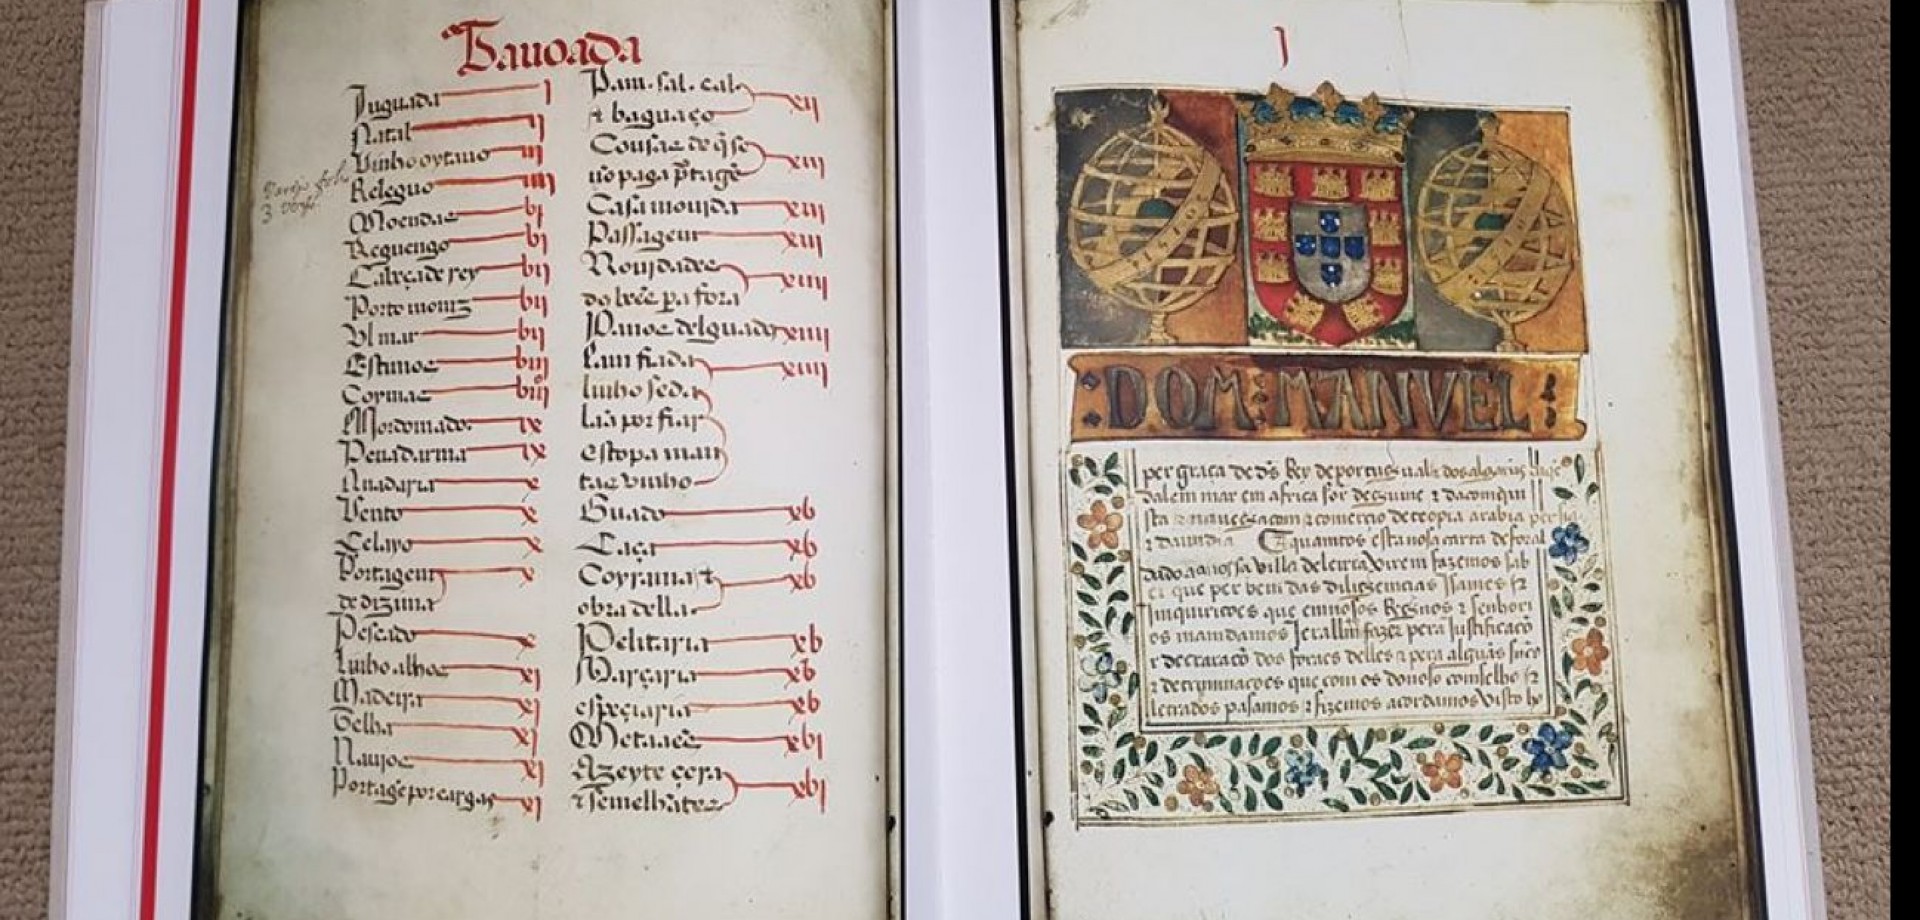 Tauoada
Juguada j
Natal ij
Vinho oytauo iij
Releguo iiij
Moendas bj
Reguengo bj
Cabeça de rey bij
Porto moniz bij
Vlmar bij
Estimos biij
Coymas biij
Mordomado ix
Penadarma ix
x
Vento x
Celayo x
Portagem x
de dizima
Pescado x
Linho alhos xj
Madeira xj
Telha xj
Nauios xj
Portagẽ por cargas xj
Pam. sal. cal. xij
& bagaço
Cousas de q̃ se xiij
nõ paga portagẽ
Casa mouida xiij
Passagem xiij
Nouidades xiiij
dos bẽes pa fora
Panos delguados xiiij
Lam fiada xiiij
linho seda
lãa por fiar
estopa man
tas vinho
Guado xb
Caça xb
Coyrama & xb
obra della
Pelitaria xb
Marçaria xb
espeçiaria xb
Metaaes xbj
Azeyte çera xbj
& semelhãtes
J
DOM : MANVEL :
per graça de ds̃ Rey de portugual & dos algarues
dalem mar em africa sõr de guine & da comqui
sta & nauegaçam & comercio de teopia arabia persia
& da india A quamtos esta nosa carta de foral
dado a nossa villa de leirea virem fazemos sab
er que per bem das diligemcias Isames &
Imquiricões que em nosos Regnos & senhori
os mamdamos Jerallm̃ fazer pera Justificacõ
& decraracõ dos foraes delles & pera alguas
& detriminacões que com os do noso comselho &
letrados pasamos & fizemos acordamos visto ho